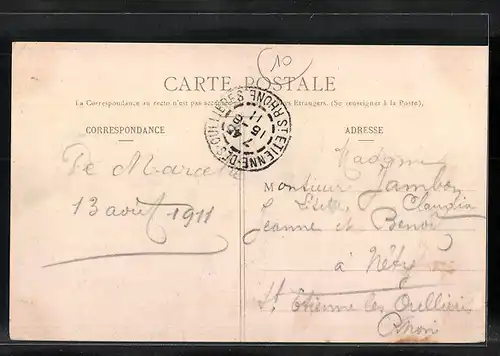 10
CARTE POSTALE
La Correspondance au recto n'est pas Etrangers. (Se renseigner à la Poste).
CORRESPONDANCE
ADRESSE
ST ETIENNE-DES-OULLIERES RHONE
De Marcelle
13 août 1911
Madame
Monsieur Jambon
Claudia
Jeanne et Benoit
à Néty
St. Etienne les Oullières
Rhône